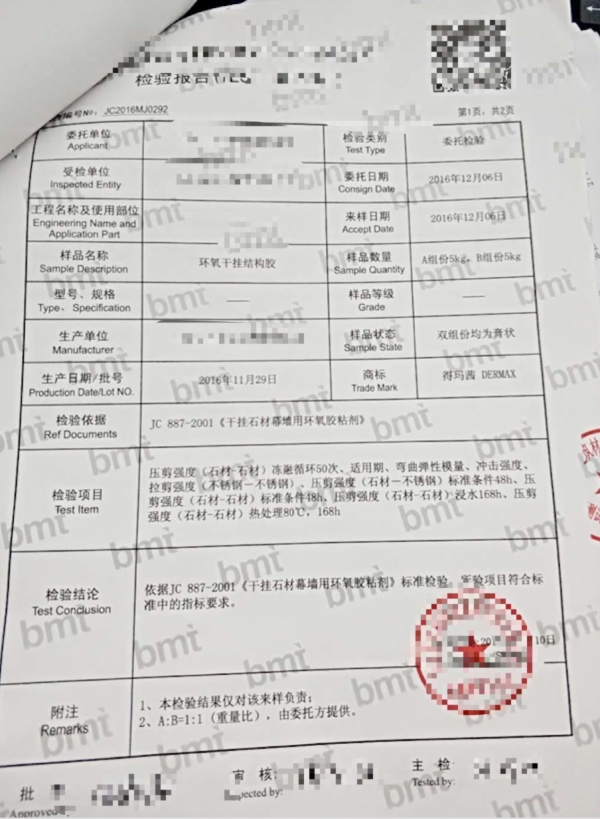 检验报告
编号№: JC2016MJ0292
第1页，共2页
委托单位
Applicant
检验类别
Test Type
委托检验
受检单位
Inspected Entity
委托日期
Consign Date
2016年12月06日
工程名称及使用部位
Engineering Name and
Application Part
来样日期
Accept Date
2016年12月06日
样品名称
Sample Description
环氧干挂结构胶
样品数量
Sample Quantity
A组份5kg，B组份5kg
型号、规格
Type、Specification
——
样品等级
Grade
——
生产单位
Manufacturer
样品状态
Sample State
双组份均为膏状
生产日期/批号
Production Date/Lot NO.
2016年11月29日
商标
Trade Mark
得玛茜 DERMAX
检验依据
Ref Documents
JC 887-2001《干挂石材幕墙用环氧胶粘剂》
检验项目
Test Item
压剪强度（石材-石材）冻融循环50次、适用期、弯曲弹性模量、冲击强度、
拉剪强度（不锈钢－不锈钢）、压剪强度（石材－不锈钢）标准条件48h、压
剪强度（石材-石材）标准条件48h、压剪强度（石材-石材）浸水168h、压剪
强度（石材-石材）热处理80℃，168h
检验结论
Test Conclusion
依据JC 887-2001《干挂石材幕墙用环氧胶粘剂》标准检验，所验项目符合标
准中的指标要求。
10日
附注
Remarks
1、本检验结果仅对该来样负责；
2、A:B=1:1（重量比），由委托方提供。
批
Approved
审 核:
pected by:
主 检:
Tested by:
bmt